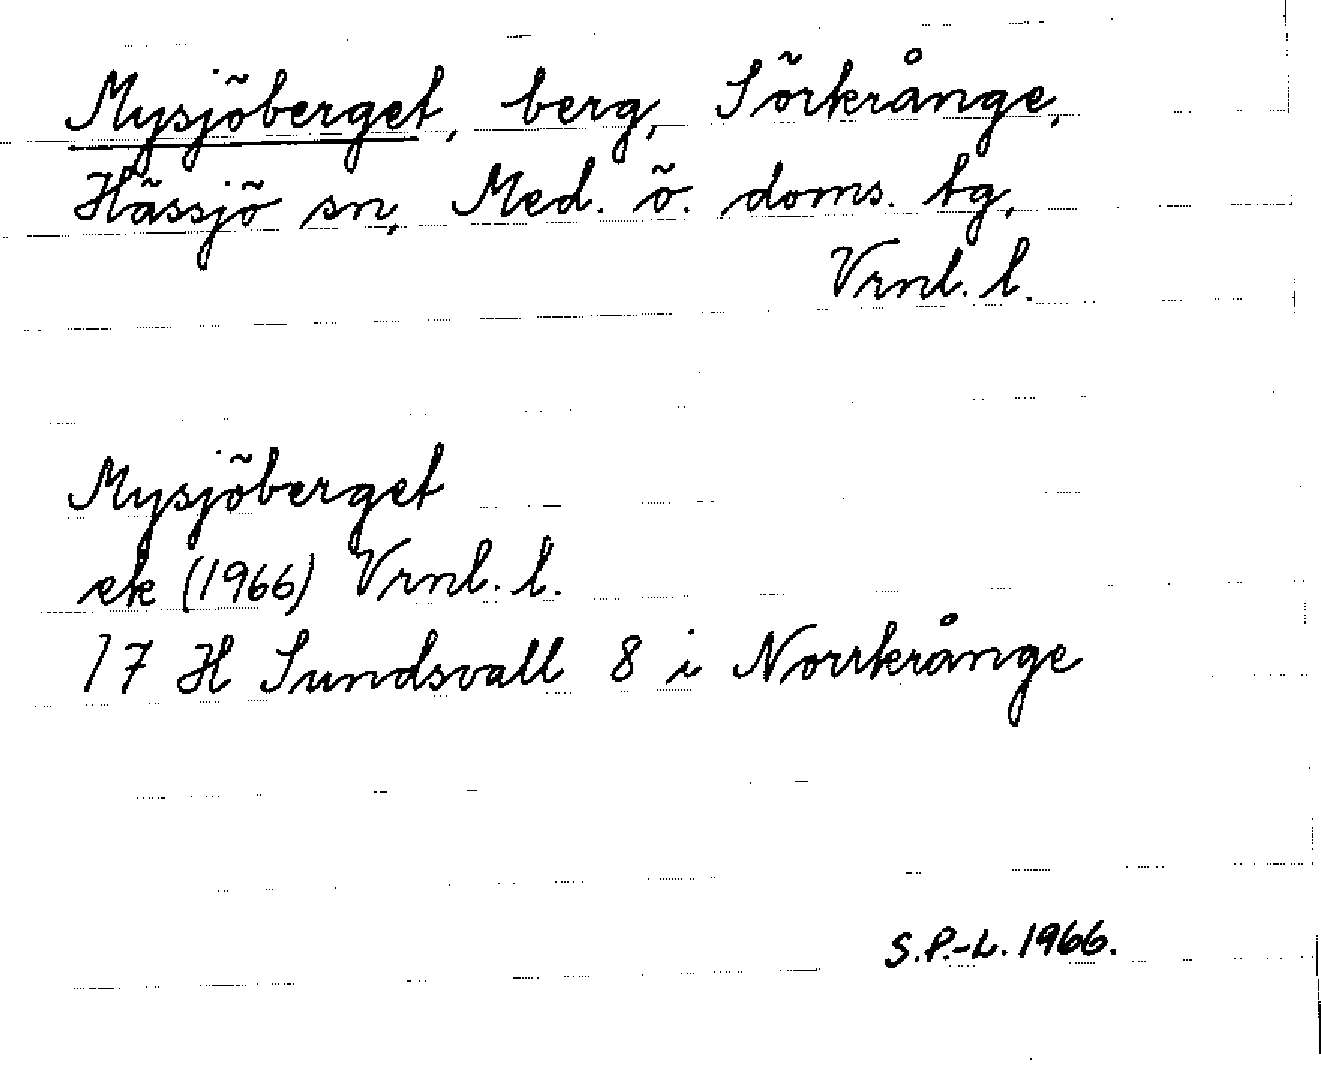 Mysjöberget, berg, Sörkrånge,
Hässjö sn, Med. ö. doms. tg,
Vrnl. l.
Mysjöberget
ek (1966) Vrnl. l.
17 H Sundsvall 8 i Norrkrånge
S.P.-L. 1966.